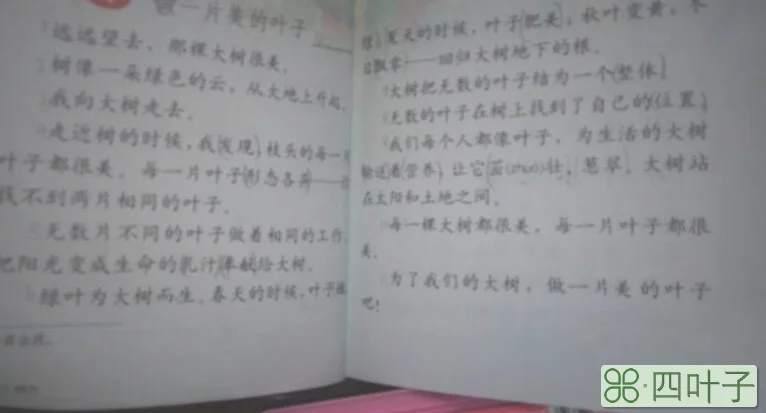 做一片美的叶子
远远望去，那棵大树很美。
树像一朵绿色的云，从大地上升起。
我向大树走去。
走近树的时候，我发现，枝头的每一
叶子都很美。每一片叶子形态各异——
找不到两片相同的叶子。
无数片不同的叶子做着相同的工作，
把阳光变成生命的乳汁奉献给大树。
绿叶为大树而生。春天的时候，叶子
绿；夏天的时候，叶子肥美；秋叶变黄，冬
日飘零——回归大树地下的根。
大树把无数的叶子结为一个整体。
无数的叶子在树上找到了自己的位置。
我们每个人都像叶子，为生活的大树
输送着营养，让它茁(zhuó)壮、葱翠。大树站
在太阳和土地之间。
每一棵大树都很美，每一片叶子都很
美。
为了我们的大树，做一片美的叶子
吧！
四叶子